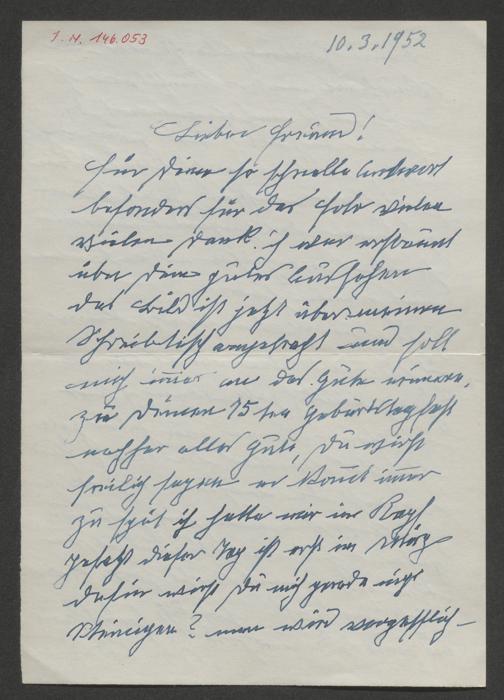 J. N. 146.053
10.3.1952
Lieber Freund!
für Deine so schnelle Antwort
besonders für das Foto vielen
vielen Dank. ich war erstaunt
über Dein gutes Aussehen
das Bild ist jetzt über meinem
Schreibtisch angebracht und soll
mich immer an das Gute erinnern.
zu Deinem 75ten Geburtstagfest
nachher alles Gute, Du wirst
freilich sagen er kommt immer
zu spät ich hatte mir im Kopf
gesetzt dieser Tag ist erst im März
dafür wirst Du mich gerade nicht
steinigen? man wird vergesslich-